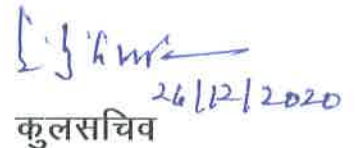 24/12/2020
कुलसचिव